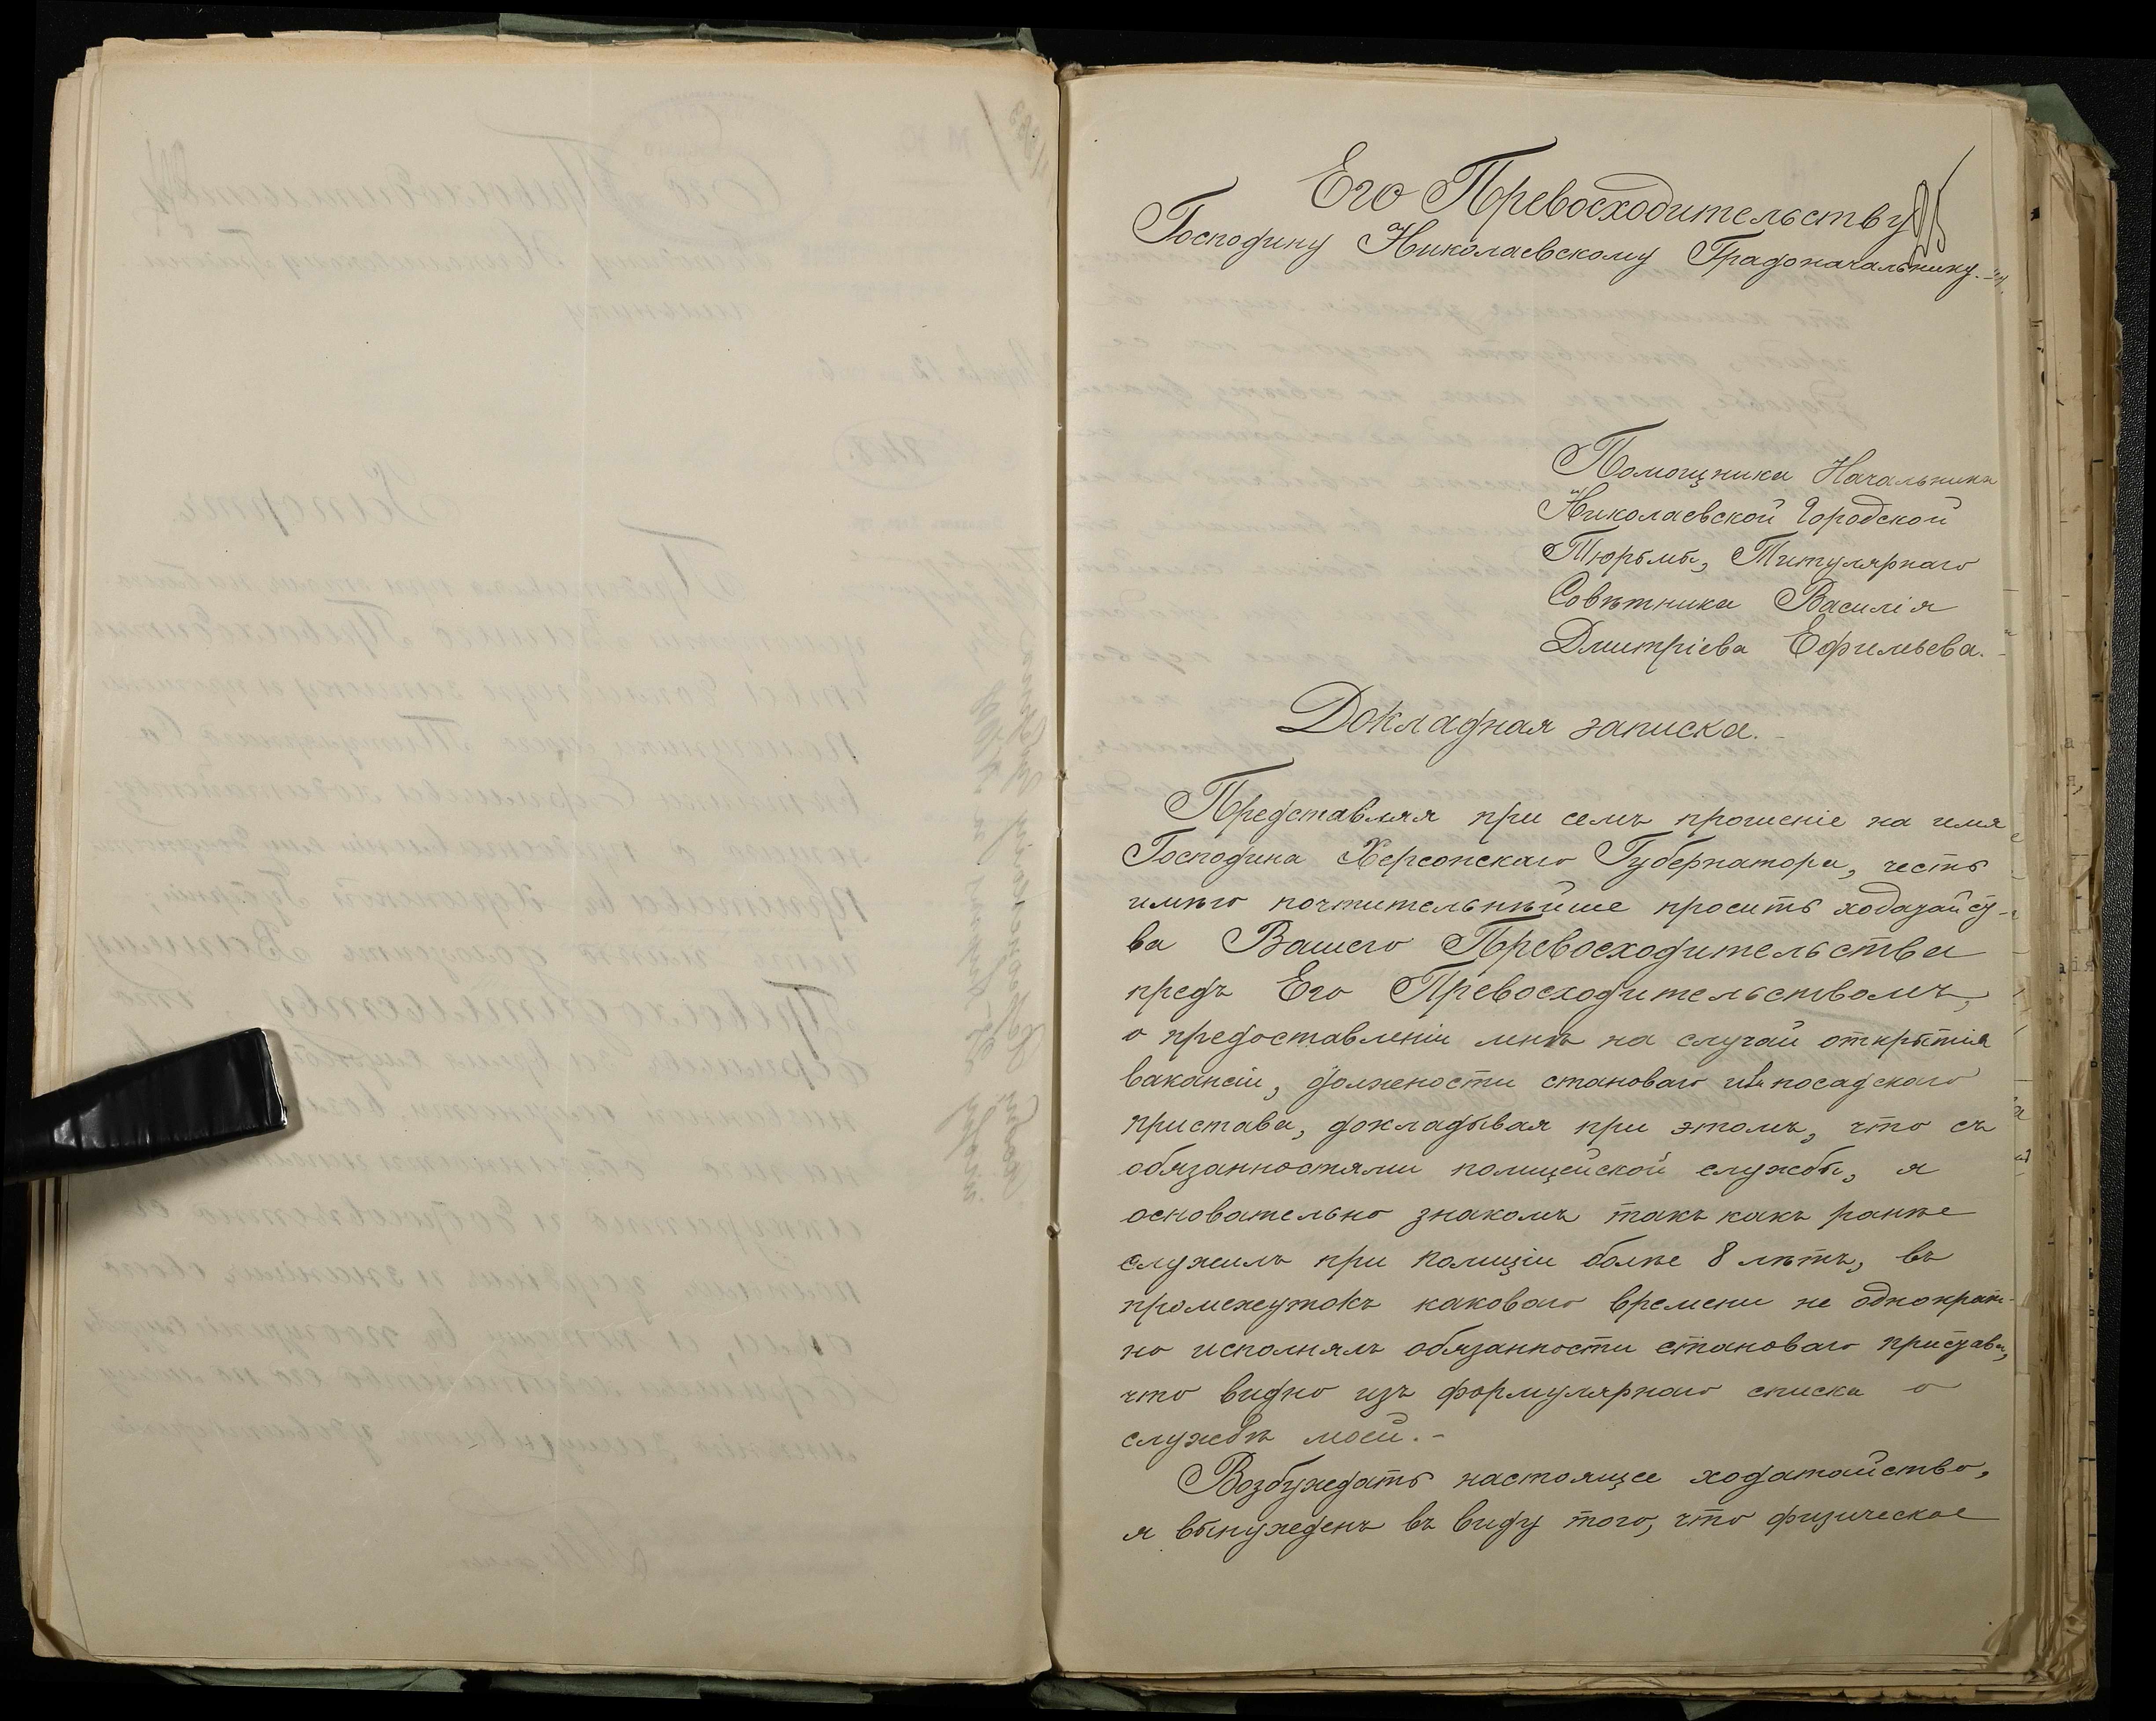 Его Превосходительству
Господину Николаевскому Градоначальнику.
Помощника Начальника
Николаевской Городской
Тюрьмы, Титулярнаго
Совѣтника Василія
Дмитріева Ефимьева.
Докладная записка.
Представляя при семъ прошеніе на имя
Господина Херсонскаго Губернатора, честь
имѣю почтительнѣйше просить ходатайст-
ва Вашего Превосходительства
предъ Его Превосходительствомъ,
о предоставленіи мнѣ на случай открытія
вакансіи, должности становаго или посадскаго
пристава, докладывая при этомъ, что съ
обязанностями полицейской службы, я
основательно знакомъ такъ какъ ранѣе
служилъ при полиціи болѣе 8 лѣтъ, въ
промежутокъ каковаго времени не однократ-
но исполнялъ обязанности становаго пристава,
что видно изъ формулярнаго списка о
службѣ моей.-
Возбуждать настоящее ходатайство,
я вынужденъ въ виду того, что физическое